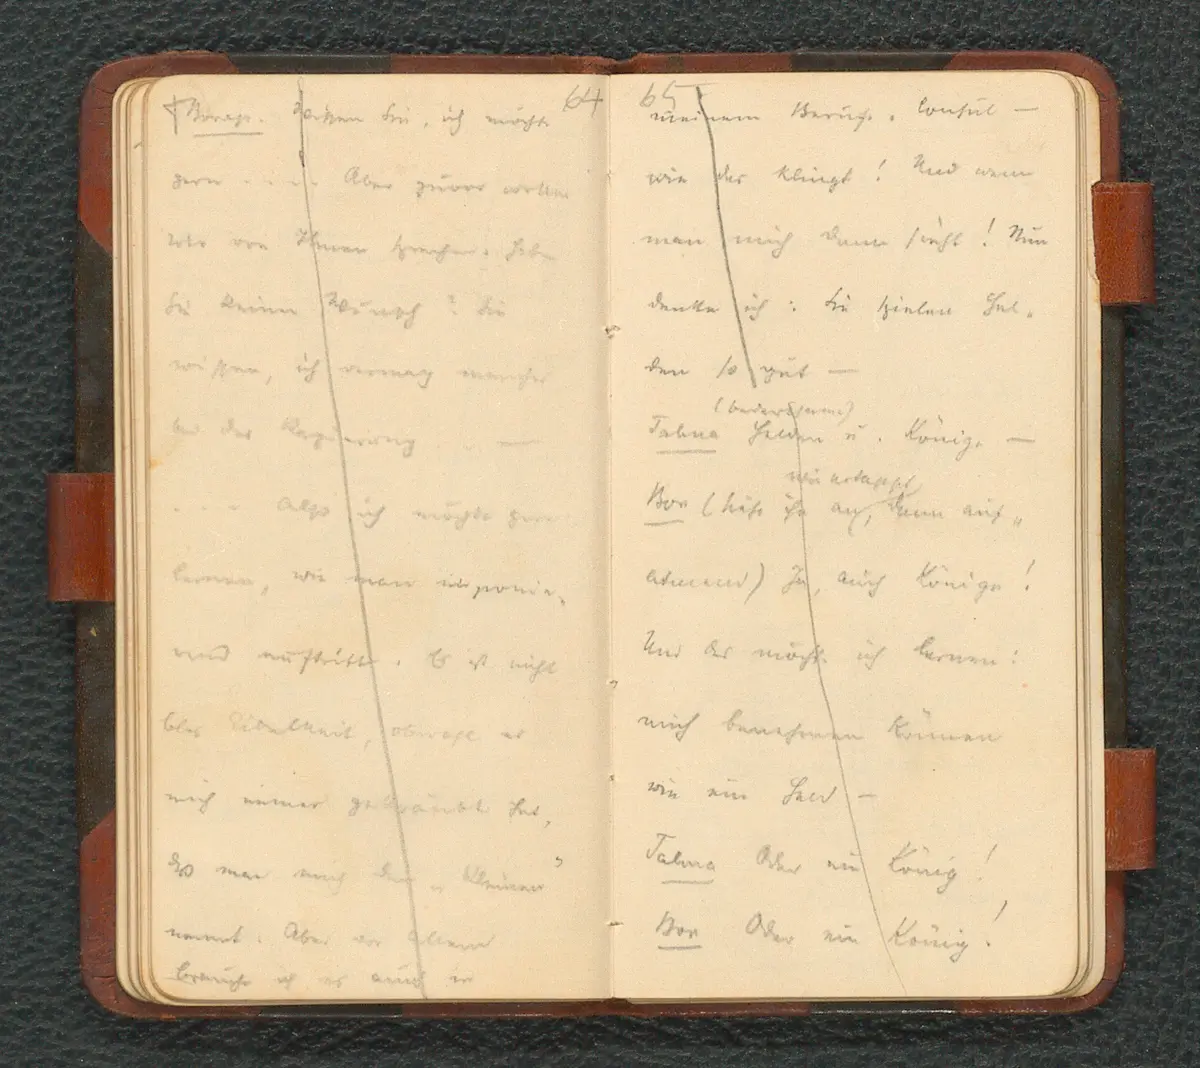 64
Bonap. Wissen Sie, ich möchte
gern . . . . Aber zuvor wollen
wir von Ihnen sprechen. Haben
Sie keinen Wunsch? Sie
wissen, ich vermag manches
bei der Regierung . . —
. . . . Also ich möchte gern
lernen, wie man imponie-
rend auftritt. Es ist nicht
blos Eitelkeit, obwohl es
mich immer gekränkt hat,
dß man mich den „Kleinen"
nennt. Aber vor Allem
brauche ich es auch in
65
meinem Beruf. Consul —
wie das klingt! Und wenn
man mich dann sieht! Nun
denke ich: Sie spielen Hel-
den so gut —
(bedeutsam)
Talma Helden u. Könige —
wie ertappt
Bon (sieht ihn an, dann auf-
atmend) Ja, auch Könige!
Und das möchte ich lernen:
mich benehmen können
wie ein Held —
Talma Oder ein König!
Bon Oder ein König!